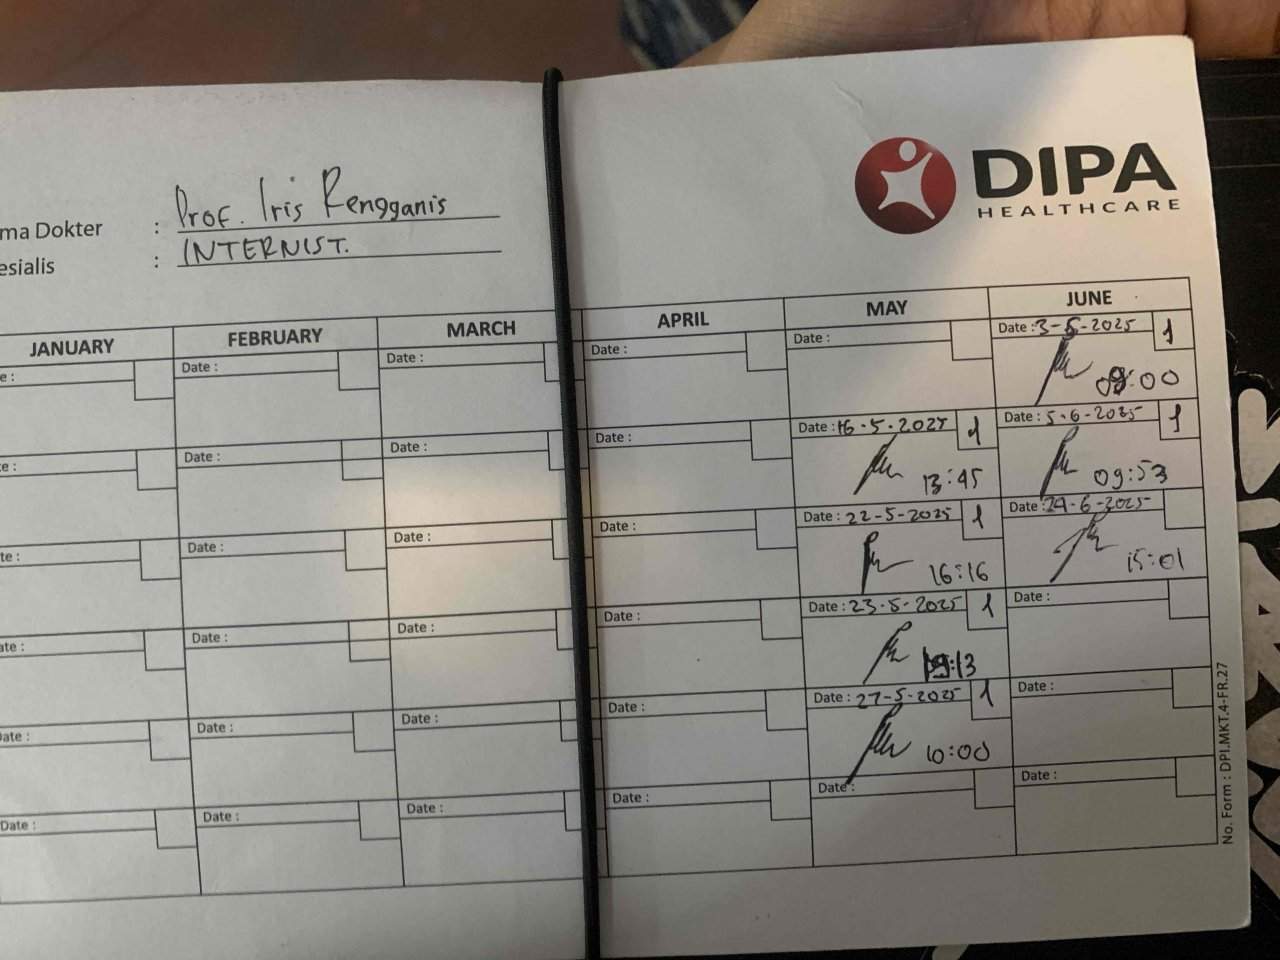 DIPA
HEALTHCARE
ma Dokter : Prof. Iris Rengganis
esialis : INTERNIST.
JANUARY FEBRUARY MARCH APRIL MAY JUNE
e : Date : Date : Date : Date : Date : 3-5-2025 1
09:00
e : Date : Date : Date : Date : 16-5-2025 1 Date : 5-6-2025 1
13:45 09:53
te : Date : Date : Date : Date : 22-5-2025 1 Date : 24-6-2025
16:16 15:01
ate : Date : Date : Date : Date : 23-5-2025 1 Date :
:13
Date : Date : Date : Date : Date : 27-5-2025 1 Date :
10:00
Date : Date : Date : Date : Date : Date :
No. Form : DPI.MKT.4-FR.27